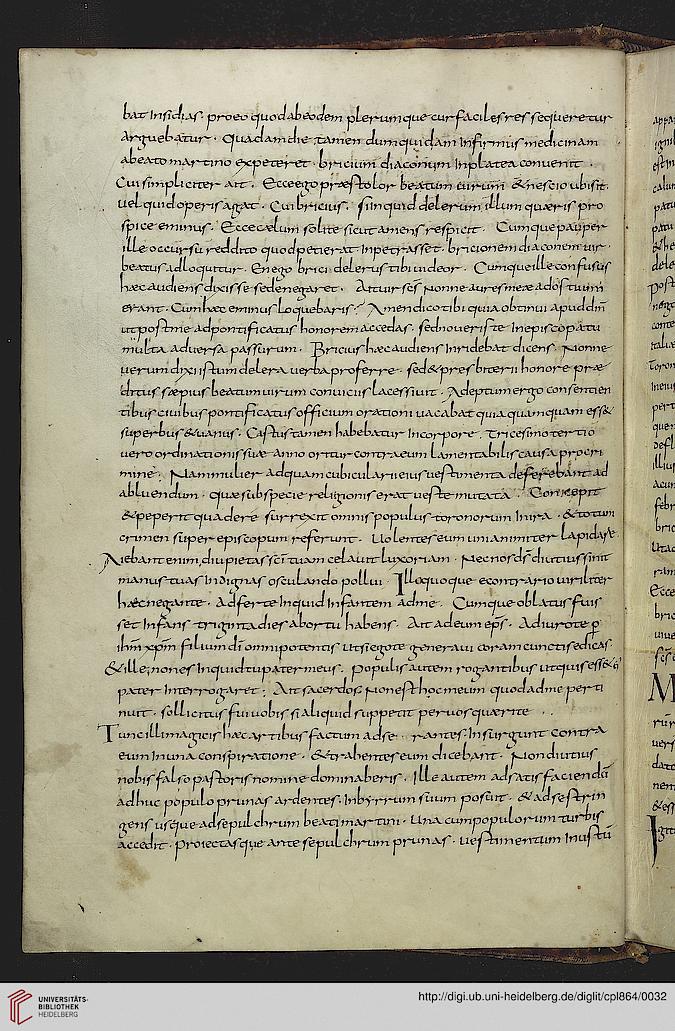 bat insidias. proeo quod abeodem plerumque cur faciles res sequeretur
arguebatur. Quadam die tamen dum quidam infirmus medicinam
abeato martino expeteret. bricium diaconum inplatea convenit.
Cui simpliciter ait. Ecce ego præstolor beatum virum & nescio ubi sit.
vel quid operis agat. Cui bricius. si inquid delerum illum quæris pro
spice eminus. Ecce cælum solite sicut amens respicit. Cumque pauper
ille occursu reddito quod petierat inpetrasset. bricionem diaconem vir
beatus adloquitur. En ego brici delerus tibi videor. Cumque ille confusus
hæc audiens dixisse se denegaret. Ait vir scs Nonne aures meæ ad os tuum
erant. Cum hæc eminus loquebaris? Amen dico tibi quia obtinui apud dnm
ut post me ad pontificatus honorem accedas. sed noveris te inepiscopatu
multa adversa passurum. Bricius hæc audiens inridebat dicens. Nonne
verum dixi istum delera verba proferre. sed & presbiterii honore præ
ditus sæpius beatum virum conviciis lacessivit. Adeptum ergo consentien
tibus civibus pontificatus officium orationi vacabat quia quamquam ess&
superbus & vanus. Castus tamen habebatur incorpore. Tricesimo tertio
vero ordinationis suæ anno oritur contra eum lamentabilis causa pro cri
mine. Nam mulier ad quam cubicularii eius vestimenta deferebant ad
abluendum. quæ sub specie religionis erat veste mutata. Concepit
& peperit qua de re surrexit omnis populus toronorum in ira. & totum
crimen super episcopum referunt. Volentes eum unianimiter lapidare.
Aiebant enim, diu pietas sci tuam celavit luxoriam. Nec nos ds diutius sinit
manus tuas indignas osculando pollui. Illo quoque econtrario viriliter
hæc negante. Adferte inquid infantem ad me. Cumque oblatus fuis
set infans triginta dies abortu habens. Ait ad eum eps. Adiuro te p
ihm xpm filium di omnipotentis ut si ego te generavi coram cunctis edicas.
& ille, non es inquid tu pater meus. Populis autem rogantibus ut quis ess&
pater interrogaret. Ait sacerdos. Non est hoc meum quod ad me perti
nuit. sollicitus fui vobis si aliquid suppetit per vos quærite
Tunc illi magicis hæc artibus factum adse rantes. Insurgunt contra
eum in una conspiratione. & trahentes eum dicebant. Non diutius
nobis falso pastoris nomine dominaberis. Ille autem ad satisfaciendũ
adhuc populo prunas ardentes. Inbyrrum suum posuit. & ad se strin
gens usque ad sepulchrum beati martini. Una cum populorum turbis
accedit. Proiectasque ante sepulchrum prunas. vestimentum inustũ
UNIVERSITÄTS-
BIBLIOTHEK
HEIDELBERG
http://digi.ub.uni-heidelberg.de/diglit/cpl864/0032